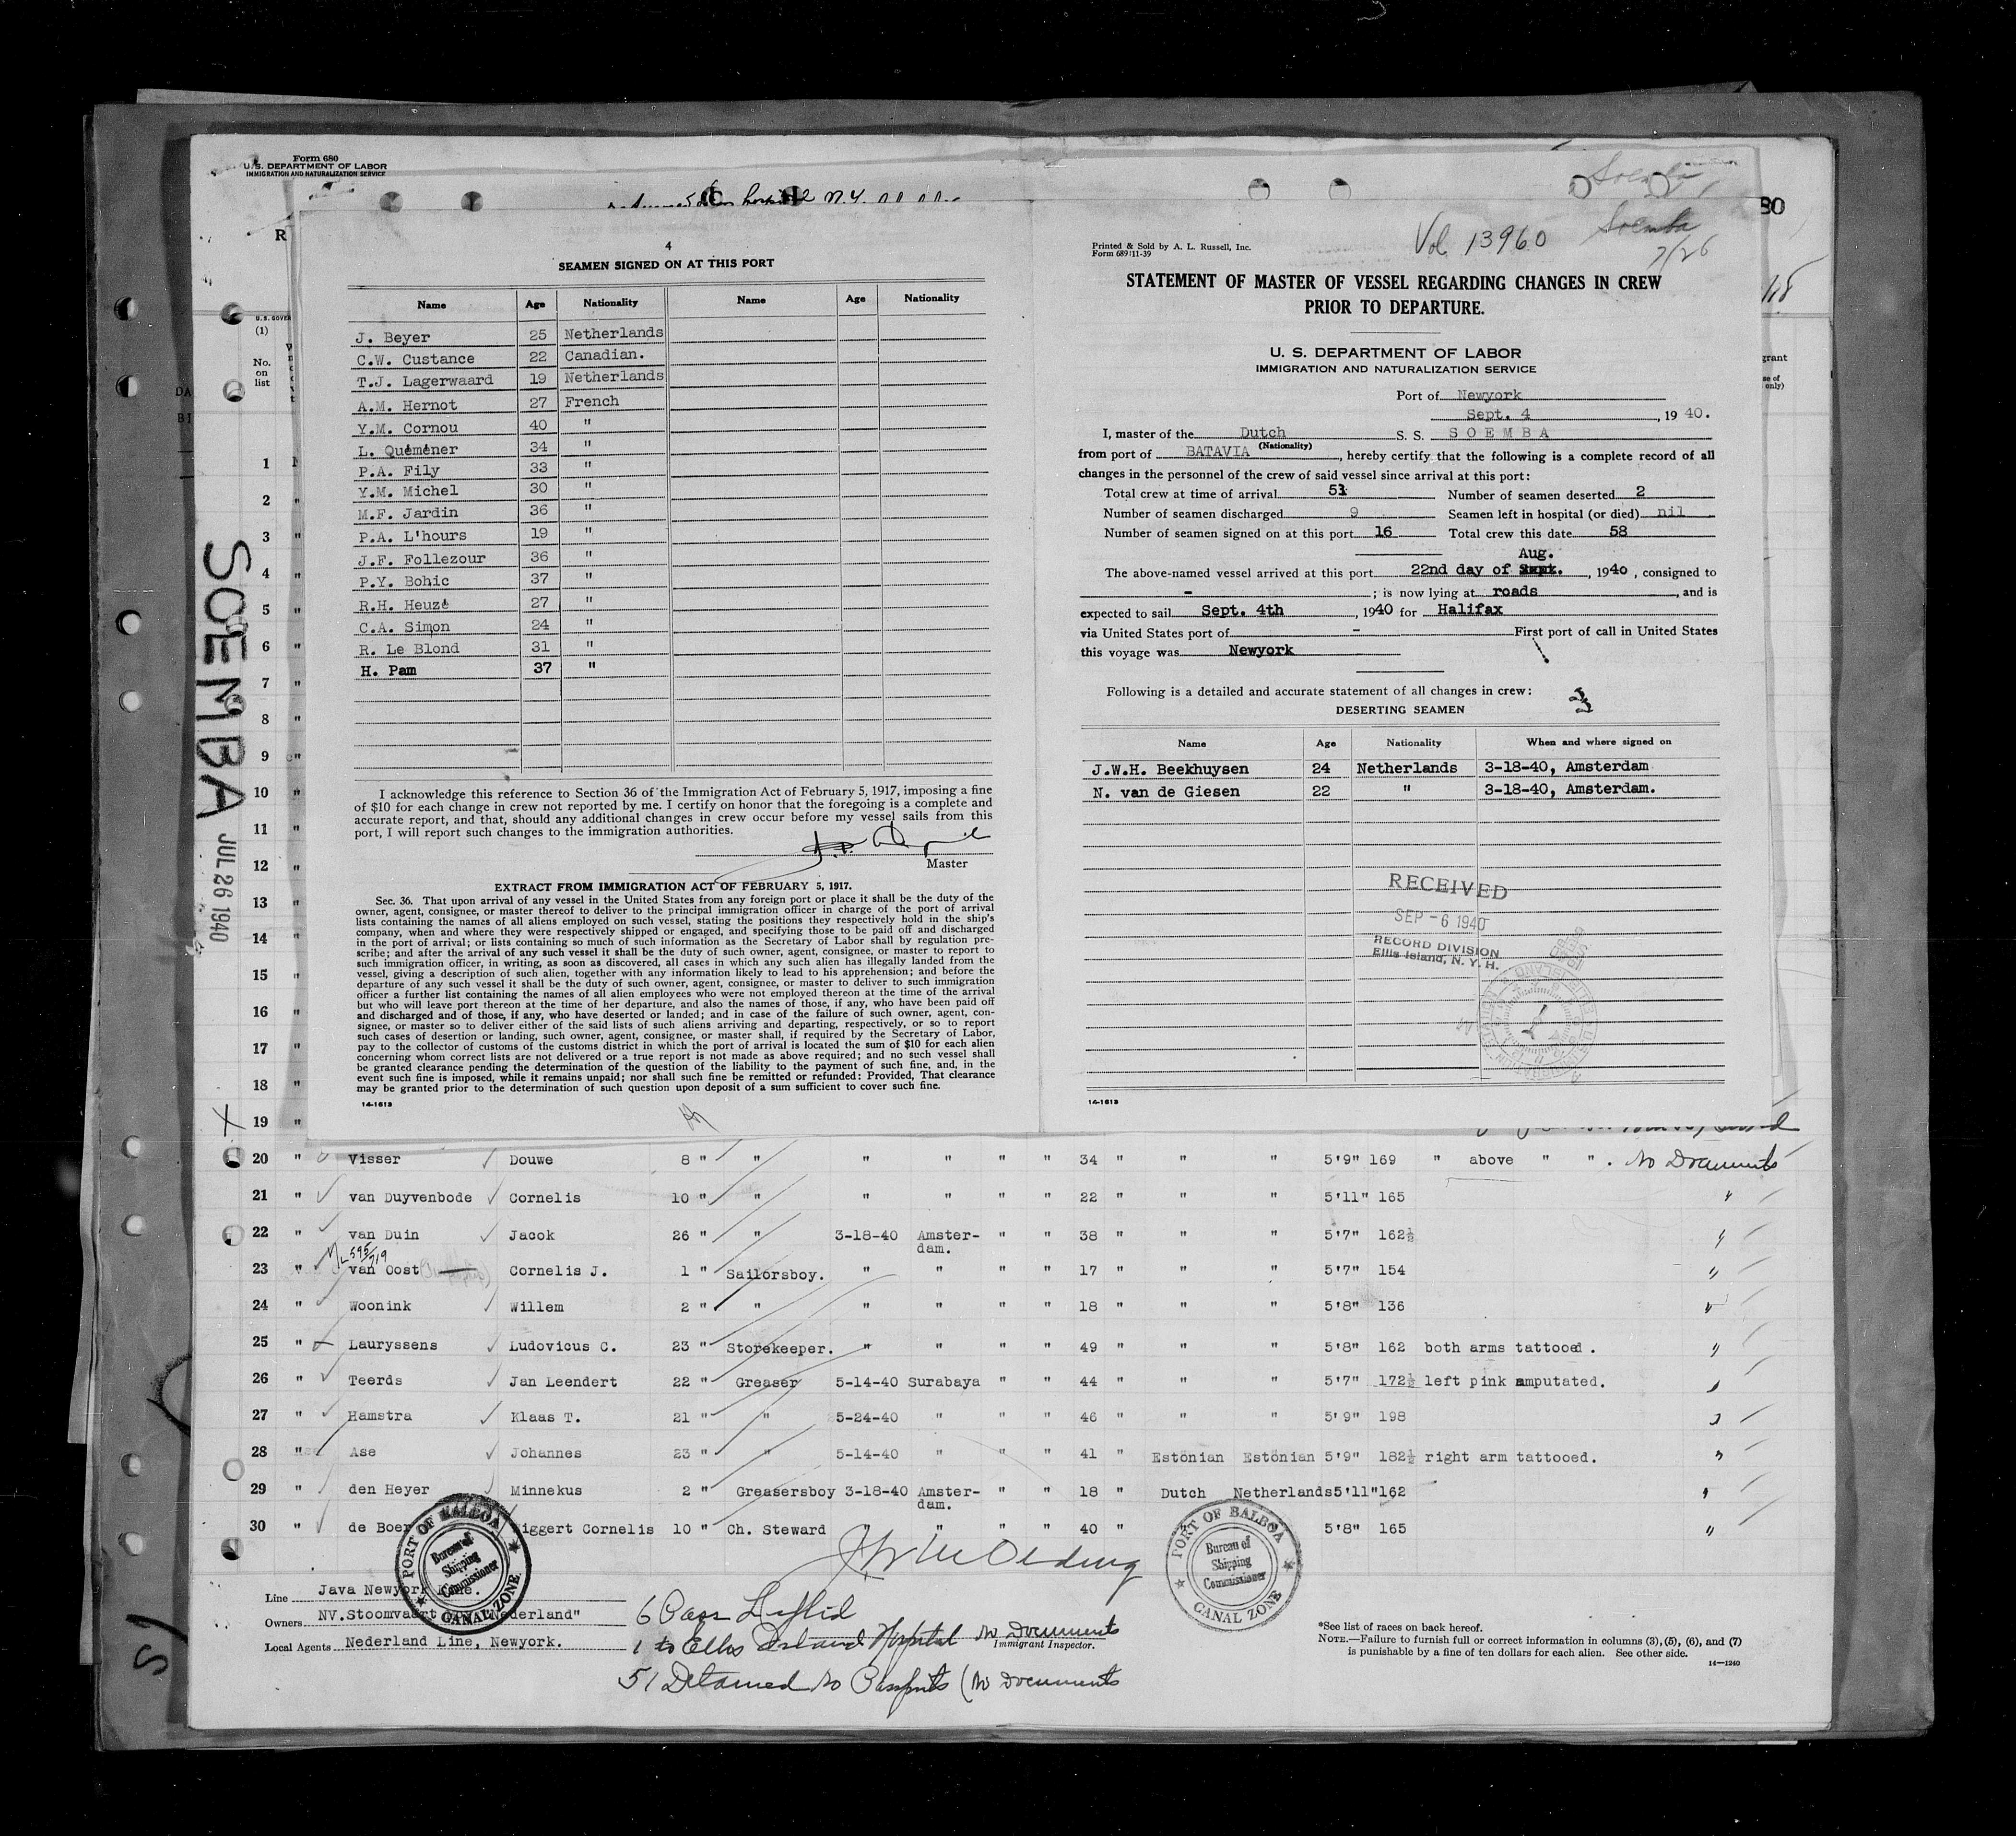 Form 680
U. S. DEPARTMENT OF LABOR
IMMIGRATION AND NATURALIZATION SERVICE
hospital N.Y.
Soemba
80
R
U. S. GOVER
(1)
No.
on
list
DA
BI
grant
se of
only)
SOEMBA
JUL 26 1940
1
2 "
3 "
4 "
5 "
6 "
7 "
8 "
9 "
10 "
11 "
12 "
13 "
14 "
15 "
16 "
17 "
18 "
19 "
4
SEAMEN SIGNED ON AT THIS PORT
Name Age Nationality Name Age Nationality
J. Beyer 25 Netherlands
C.W. Custance 22 Canadian.
T.J. Lagerwaard 19 Netherlands
A.M. Hernot 27 French
Y.M. Cornou 40 "
L. Quéméner 34 "
P.A. Fily 33 "
Y.M. Michel 30 "
M.F. Jardin 36 "
P.A. L'hours 19 "
J.F. Follezour 36 "
P.Y. Bohic 37 "
R.H. Heuzé 27 "
C.A. Simon 24 "
R. Le Blond 31 "
H. Pam 37 "
I acknowledge this reference to Section 36 of the Immigration Act of February 5, 1917, imposing a fine
of $10 for each change in crew not reported by me. I certify on honor that the foregoing is a complete and
accurate report, and that, should any additional changes in crew occur before my vessel sails from this
port, I will report such changes to the immigration authorities.
Master
EXTRACT FROM IMMIGRATION ACT OF FEBRUARY 5, 1917.
Sec. 36. That upon arrival of any vessel in the United States from any foreign port or place it shall be the duty of the
owner, agent, consignee, or master thereof to deliver to the principal immigration officer in charge of the port of arrival
lists containing the names of all aliens employed on such vessel, stating the positions they respectively hold in the ship's
company, when and where they were respectively shipped or engaged, and specifying those to be paid off and discharged
in the port of arrival; or lists containing so much of such information as the Secretary of Labor shall by regulation pre-
scribe; and after the arrival of any such vessel it shall be the duty of such owner, agent, consignee, or master to report to
such immigration officer, in writing, as soon as discovered, all cases in which any such alien has illegally landed from the
vessel, giving a description of such alien, together with any information likely to lead to his apprehension; and before the
departure of any such vessel it shall be the duty of such owner, agent, consignee, or master to deliver to such immigration
officer a further list containing the names of all alien employees who were not employed thereon at the time of the arrival
but who will leave port thereon at the time of her departure, and also the names of those, if any, who have been paid off
and discharged and of those, if any, who have deserted or landed; and in case of the failure of such owner, agent, con-
signee, or master so to deliver either of the said lists of such aliens arriving and departing, respectively, or so to report
such cases of desertion or landing, such owner, agent, consignee, or master shall, if required by the Secretary of Labor,
pay to the collector of customs of the customs district in which the port of arrival is located the sum of $10 for each alien
concerning whom correct lists are not delivered or a true report is not made as above required; and no such vessel shall
be granted clearance pending the determination of the question of the liability to the payment of such fine, and, in the
event such fine is imposed, while it remains unpaid; nor shall such fine be remitted or refunded: Provided, That clearance
may be granted prior to the determination of such question upon deposit of a sum sufficient to cover such fine.
14-1613
Printed & Sold by A. L. Russell, Inc.
Form 689:11-39
Vol 13960
Soemba
7/26
STATEMENT OF MASTER OF VESSEL REGARDING CHANGES IN CREW
PRIOR TO DEPARTURE.
U. S. DEPARTMENT OF LABOR
IMMIGRATION AND NATURALIZATION SERVICE
Port of Newyork
Sept. 4, 1940.
I, master of the Dutch S. S. SOEMBA
(Nationality)
from port of BATAVIA, hereby certify that the following is a complete record of all
changes in the personnel of the crew of said vessel since arrival at this port:
Total crew at time of arrival 53 Number of seamen deserted 2
Number of seamen discharged 9 Seamen left in hospital (or died) nil
Number of seamen signed on at this port 16 Total crew this date 58
Aug.
The above-named vessel arrived at this port 22nd day of Sept., 1940, consigned to
-; is now lying at roads, and is
expected to sail Sept. 4th, 1940 for Halifax
via United States port of - First port of call in United States
this voyage was Newyork
Following is a detailed and accurate statement of all changes in crew:
DESERTING SEAMEN
Name Age Nationality When and where signed on
J.W.H. Beekhuysen 24 Netherlands 3-18-40, Amsterdam
N. van de Giesen 22 " 3-18-40, Amsterdam.
RECEIVED
SEP - 6 1940
RECORD DIVISION
Ellis Island, N. Y. H.
14-1613
20 " Visser Douwe 8 " " " " " " 34 " " " 5'9" 169 " above " ". No Documents
21 " van Duyvenbode Cornelis 10 " " " " " " 22 " " " 5'11" 165 "
22 " van Duin Jacok 26 " " 3-18-40 Amster-dam. " " 38 " " " 5'7" 162½ "
595/719
23 " van Oost Cornelis J. 1 " Sailorsboy. " " " " 17 " " " 5'7" 154 "
24 " Woonink Willem 2 " " " " " " 18 " " " 5'8" 136 "
25 " Lauryssens Ludovicus C. 23 " Storekeeper. " " " " 49 " " " 5'8" 162 both arms tattooed. "
26 " Teerds Jan Leendert 22 " Greaser 5-14-40 Surabaya " " 44 " " " 5'7" 172½ left pink amputated. "
27 " Hamstra Klaas T. 21 " " 5-24-40 " " " 46 " " " 5'9" 198 "
28 " Ase Johannes 23 " " 5-14-40 " " " 41 " Estönian Estönian 5'9" 182½ right arm tattooed. "
29 " den Heyer Minnekus 2 " Greasersboy 3-18-40 Amster-dam. " " 18 " Dutch Netherlands 5'11" 162 "
30 " de Boer iggert Cornelis 10 " Ch. Steward " " " " 40 " 5'8" 165 "
PORT OF BALBOA
Bureau of
Shipping
Commissioner
CANAL ZONE
PORT OF BALBOA
Bureau of
Shipping
Commissioner
CANAL ZONE
Line Java Newyork Line.
Owners NV.Stoomvaart Nederland"
Local Agents Nederland Line, Newyork.
6 Pass
1 to Ellis Island Hospital No Documents
Immigrant Inspector.
51 Detained No Passports (No Documents
*See list of races on back hereof.
NOTE.—Failure to furnish full or correct information in columns (3), (5), (6), and (7)
is punishable by a fine of ten dollars for each alien. See other side.
14—1240
51